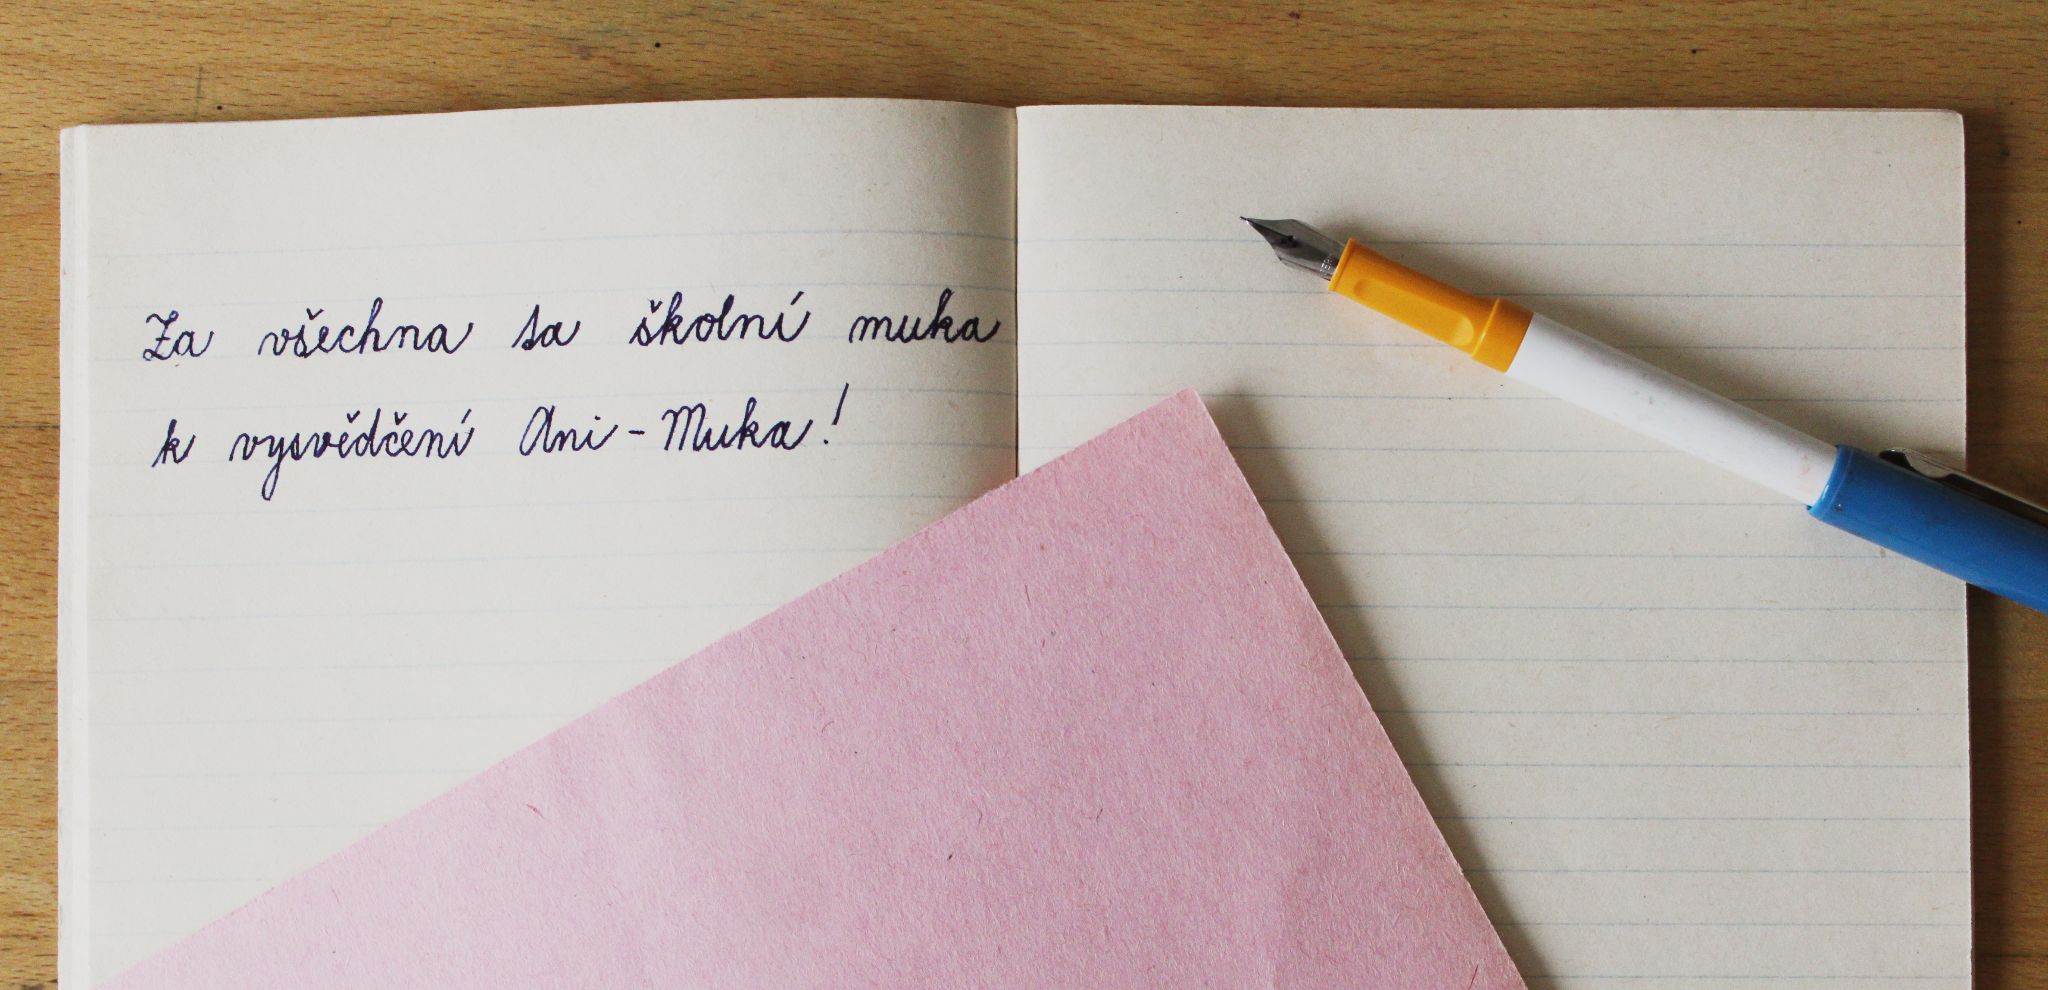 Za všechna ta školní muka
k vysvědčení Ani-Muka!